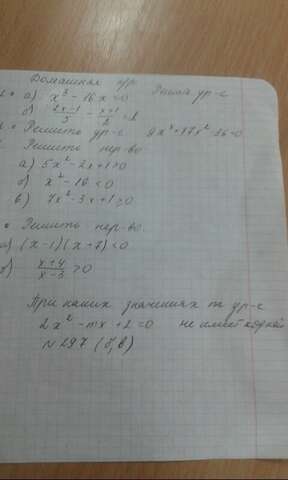 Домашняя к/р
1. а) x³ - 16x = 0 Решить ур-е
б) (2x-1)/3 - (x+1)/2 = 1
Решить ур-е 9x⁴+17x²-26=0
Решить нер-во
а) 5x² - 2x + 1 > 0
б) x² - 10 < 0
в) 7x² - 3x + 1 ≥ 0
• Решить нер-во
а) (x-1)(x+7) < 0
б) (x+4)/(x-3) > 0
При каких значениях m ур-е
2x² - mx + 2 = 0 не имеет корней
№ 297 (б, в)